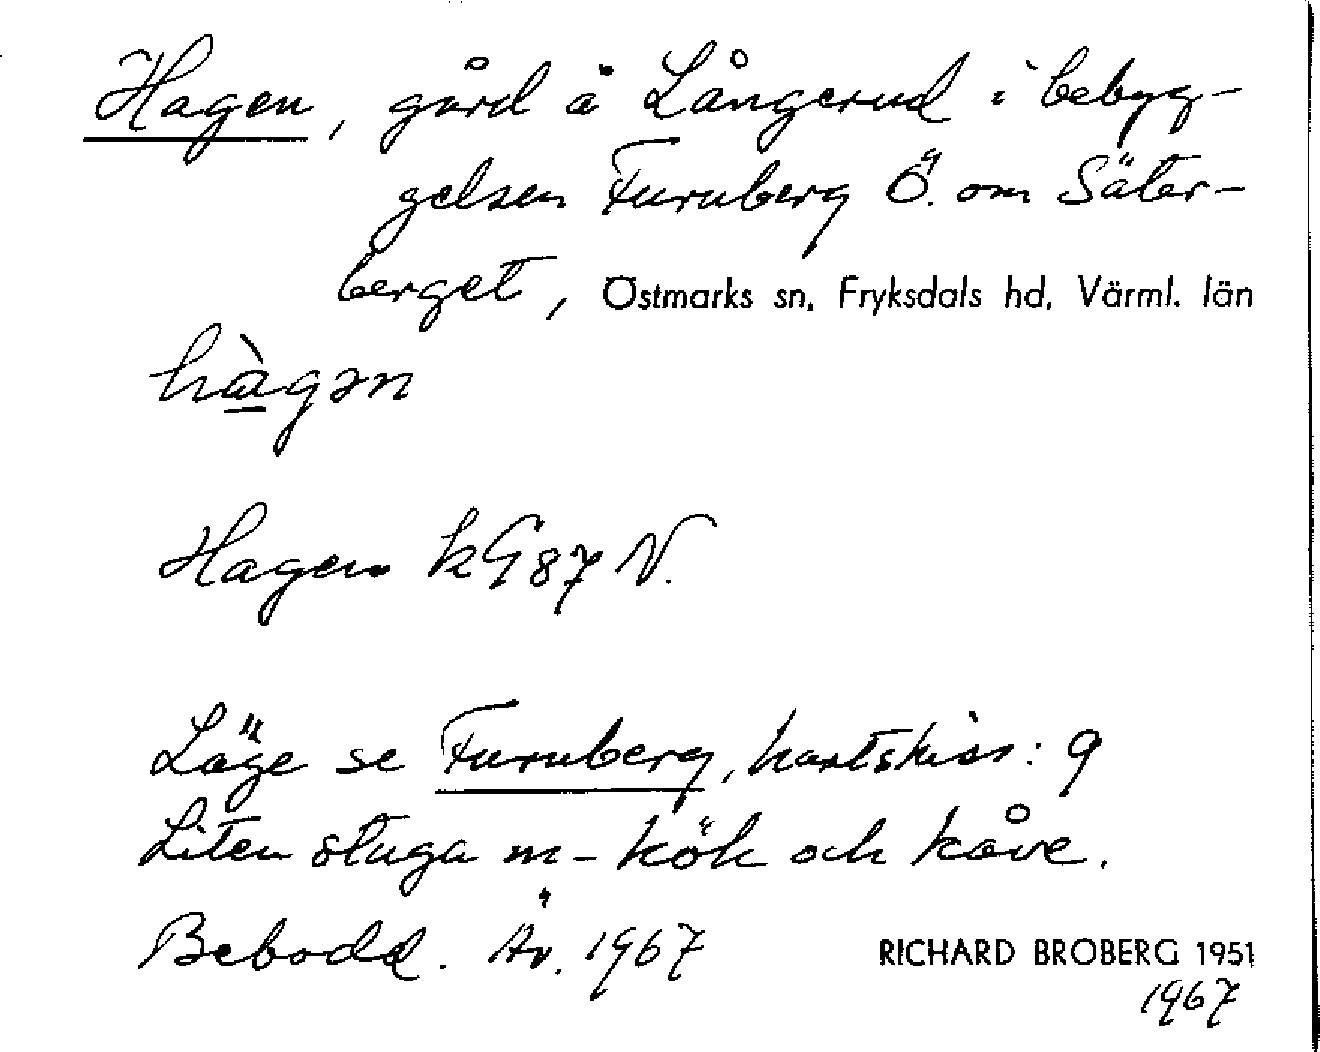 Hagen, gård å Långerud i bebyg-
gelsen Furuberg Ö. om Säter-
berget, Östmarks sn, Fryksdals hd, Värml. län
hàgən
Hagen kG87 N.
Läge se Furuberg, kartskiss: 9
Liten stuga m - kök och kåve.
Bebodd. Äv. 1967
RICHARD BROBERG 1951
1967